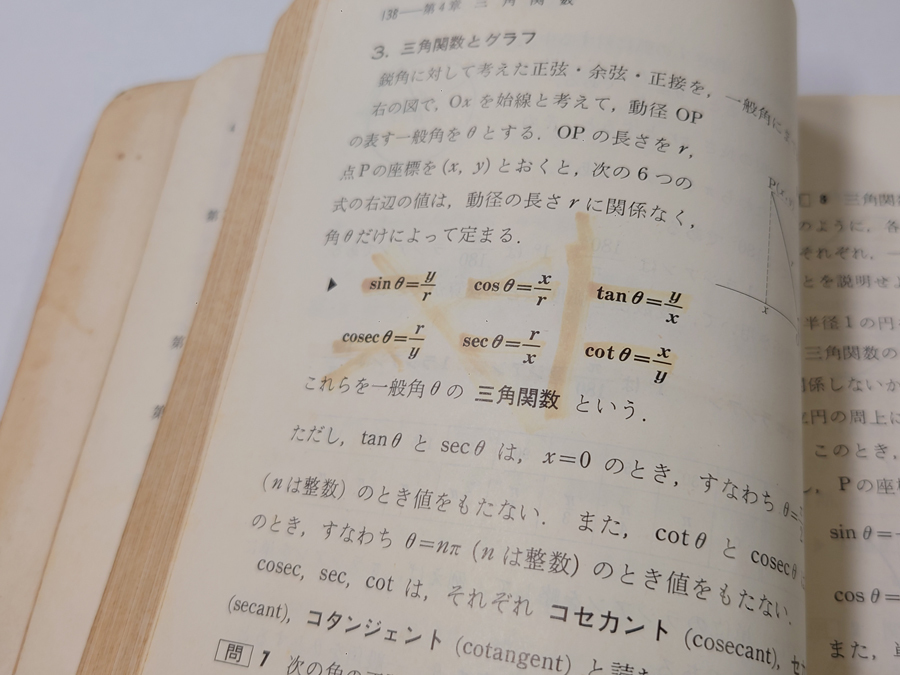 138——第4章 三角関数
3. 三角関数とグラフ
鋭角に対して考えた正弦・余弦・正接を, 一般角に
右の図で, Oxを始線と考えて, 動径 OP
の表す一般角をθとする. OP の長さを r,
点Pの座標を (x, y) とおくと, 次の 6 つの
式の右辺の値は, 動径の長さ r に関係なく,
角θだけによって定まる.
P(x, y)
x
▶ sin θ = y/r cos θ = x/r tan θ = y/x
cosec θ = r/y sec θ = r/x cot θ = x/y
これらを一般角θの 三角関数 という.
ただし, tan θ と sec θ は, x=0 のとき, すなわち θ=
(n は整数) のとき値をもたない. また, cot θ と cosec θ
のとき, すなわち θ=nπ (n は整数) のとき値をもたない.
cosec, sec, cot は, それぞれ コセカント (cosecant), セ
(secant), コタンジェント (cotangent) と読
問 7 次の角の
8 三角関
のように, 各
それぞれ, 一
とを説明せよ
半径 1 の円
三角関数の
係しないか
円の周上に
このとき,
Pの座
sin θ =
cos θ =
また,